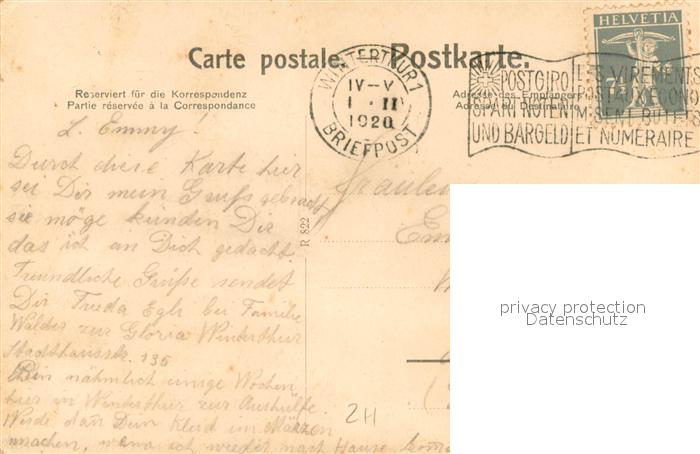 HELVETIA
Carte postale. Postkarte.
WINTERTHUR 1
IV–V
1. II
1920
BRIEFPOST
POSTGIRO
SPART NOTEN
UND BARGELD
LES VIREMENTS
POSTAUX ÉCONO
MISENT BILLETS
ET NUMÉRAIRE
Reserviert für die Korrespondenz
Partie réservée à la Correspondance
Adresse des Empfängers
Adresse du Destinataire
L. Emmy!
Durch diese Karte hier
sei Dir mein Gruss gebracht
sie möge künden Dir
das ich an Dich gedacht.
Freundliche Grüsse sendet
Dir Frieda Egli bei Familie
Walder zur Gloria Winterthur
Stadthausstr. 135
Bin nähmlich einige Wochen
hier in Winterthur zur Aushülfe.
Werde dan Dein Kleid im Märzen
machen, wenn ich wieder nach Hause komme
Fräulein
R 822
2H
privacy protection
Datenschutz